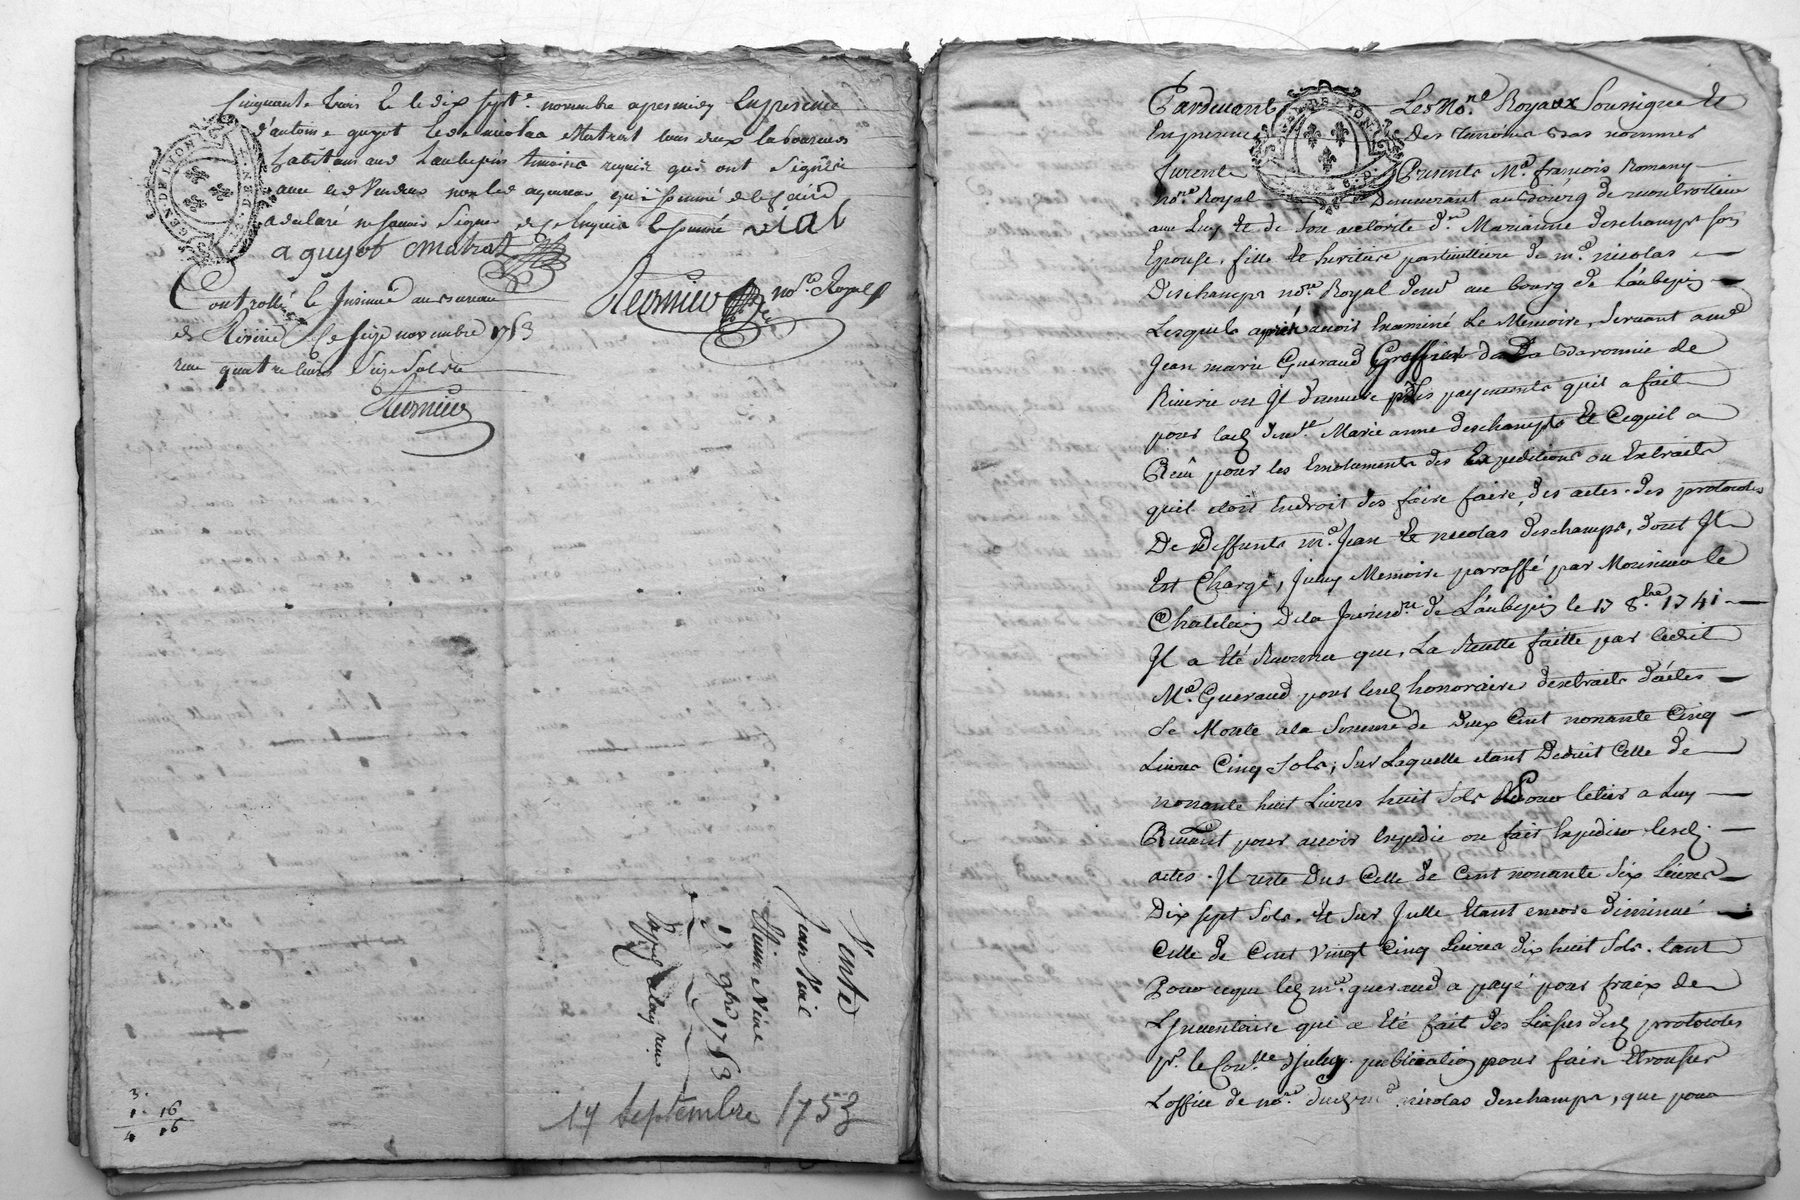 Cinquante trois le dix sept.e novembre apres midy En presence
d'antoine guyot et de nicolas Matrat tous deux laboureurs
habitans aud Laubepin temoins requis qui ont signé
avec led Vendeur non led aquereur qui sommé de le faire
a declaré ne savoir signer de ce Enquis Et sommé vial
a guyot Matrat
no.re Royal
Controllé et Insinué au bureau
de Riverie Ce seize novembre 1753
reçu quatre livres seize sols
GEN. DE LYON
Vente
Jean Vial
17 9bre 1753
17 Septembre 1753
3.
1. 16
4 16
Pardevant Les No.res Royaux Soussignes Et
En presence des temoins bas nommes
furent Presents M.e françois Romany
no.re Royal Demeurant au Bourg de
avec Luy Et de Son autorite d.lle Marianne deschamps son
Epouse, fille Et heritiere particulliere de m.e nicolas
Deschamps no.re Royal dud au bourg de Laubepin
Lesquels après avoir Examiné Le Memoire, Servant a m.e
Jean marie Gueraud Greffier de la Baronnie de
Riverie ou Il demeure des payements quil a fait
pour lad dem.lle Marie anne deschamps Et Cequil a
Reçu pour les Emoluments des Expeditions ou Extraits
quil etoit En droit des faire faire, des actes des protocoles
De deffunts m.es Jean Et nicolas deschamps, dont Il
Est Chargé, Memoire paraffé par Monsieur le
Chatelain De la Jurisd.on de Laubepin le 17 8.bre 1741
Il a Eté Reconnu que, La Recette faitte par ledit
M.e Gueraud pour lesd honoraires dextraits d'actes
Se Monte a la Somme de deux Cent nonante Cinq
Livres Cinq Sols; Sur Laquelle etant Deduit Celle de
nonante huit Livres huit Sols a Luy
pour avoir Expedié ou fait Expedier lesd.
actes. Il reste Dus Celle de Cent nonante Six Livres
Dix sept Sols. Et Sur Icelle Etant encore diminué
Celle de Cent Vingt Cinq Livres dix huit Sols. tant
Pour ceque led m.e gueraud a payé pour fraix de
L'Inventaire qui a Eté fait des Liasses desd protocoles
publication pour faire
L'office de no.re dud m.e nicolas deschamps, que pour